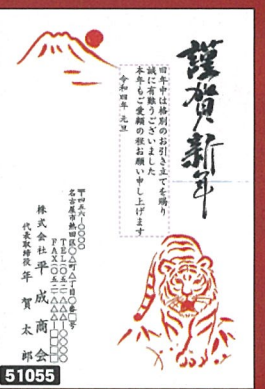 謹賀新年
旧年中は格別のお引き立てを賜り
誠に有難うございました
本年もご愛顧の程お願い申し上げます
令和四年 元旦
〒四五六-〇〇〇〇
名古屋市熱田区〇△町△丁目〇番〇号
TEL(〇五二)△△△-〇〇〇〇
FAX(〇五二)△△△-□□□□
株式会社 平成商会
代表取締役 年賀太郎
51055